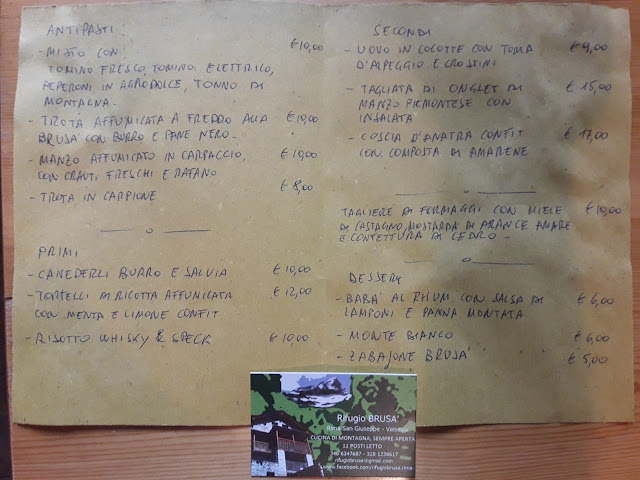 ANTIPASTI:
- MISTO CON: € 10,00
TOMINO FRESCO, TOMINO ELETTRICO,
PEPERONI IN AGRODOLCE, TONNO DI
MONTAGNA.
- TROTA AFFUMICATA A FREDDO ALLA € 10,00
BRUSÀ CON BURRO E PANE NERO.
- MANZO AFFUMICATO IN CARPACCIO, € 10,00
CON CRAUTI FRESCHI E RAFANO
- TROTA IN CARPIONE € 8,00
PRIMI
- CANEDERLI BURRO E SALVIA € 10,00
- TORTELLI DI RICOTTA AFFUMICATA € 12,00
CON MENTA E LIMONE CONFIT
- RISOTTO WHISKY & SPECK € 10,00
SECONDI
- UOVO IN COCOTTE CON TOMA € 9,00
D'ALPEGGIO E CROSTINI
- TAGLIATA DI ONGLET DI € 15,00
MANZO PIEMONTESE CON
INSALATA
- COSCIA D'ANATRA CONFIT € 17,00
CON COMPOSTA DI AMARENE
TAGLIERE DI FORMAGGI CON MIELE € 10,00
DI CASTAGNO, MOSTARDA DI ARANCE AMARE
E CONFETTURA DI CEDRO -
DESSERT
- BABÀ AL RHUM CON SALSA DI € 6,00
LAMPONI E PANNA MONTATA
- MONTE BIANCO € 6,00
- ZABAJONE BRUSÀ € 5,00
Rifugio BRUSA'
Rima San Giuseppe - Valsesia
CUCINA DI MONTAGNA, SEMPRE APERTA
11 POSTI LETTO
6347687 - 328 1236617
rifugiobrusa@gmail.com
www.facebook.com/rifugiobrusa.rima